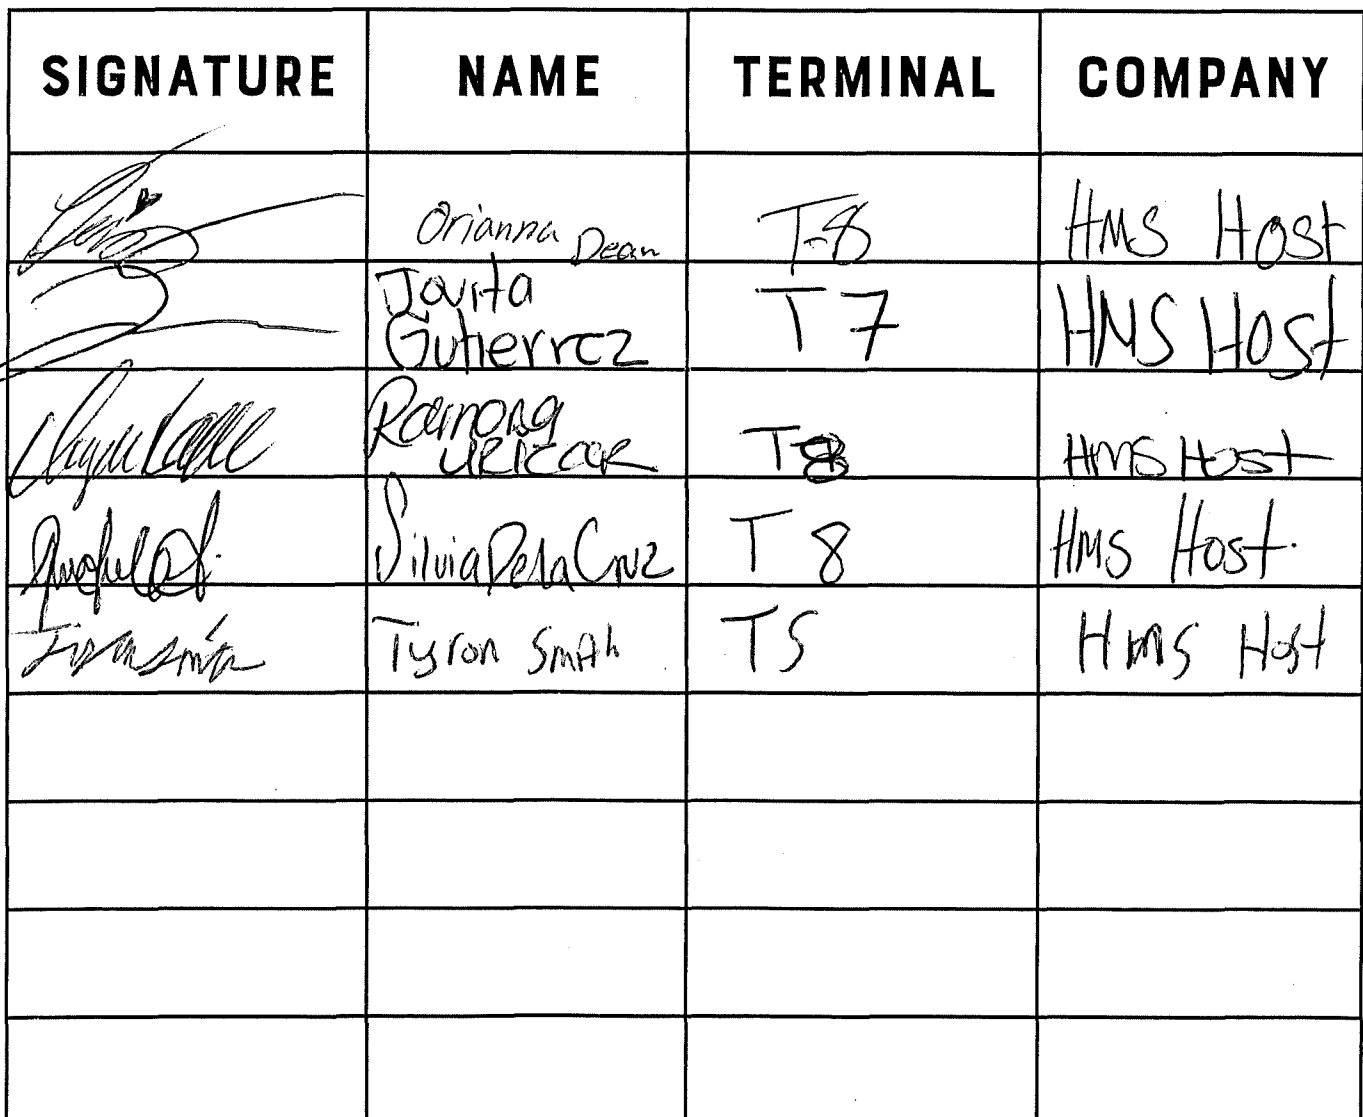 SIGNATURE NAME TERMINAL COMPANY
Orianna Dean T-8 HMS Host
Jovita
Gutierrez T 7 HMS Host
Ramona
URIZAR T8 HMS Host
Silvia Dela Cruz T 8 HMS Host
Tyron Smith T5 HMS Host